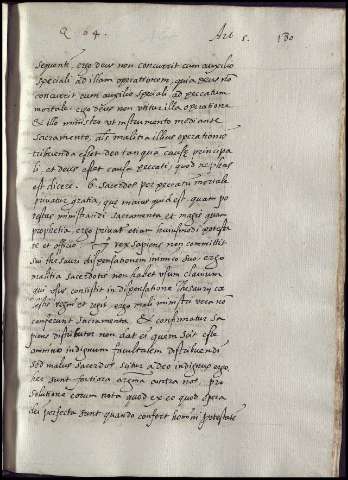 Q 64. Art 5. 130
sequenti, ergo deus non concurrit cum auxilio
speciali ad illam operationem, quia deus nō
concurrit cum auxilio speciali ad peccatum
mortale. ergo deus non utitur illa operatione
& illo ministro ut instrumento mediante
sacramento, als malitia illius operationis
tribuenda esset deo tanquā causæ principa
li, et deus esset causa peccati, quod nephas
est dicere. 6. Sacerdos per peccatū mortale
privatur gratia, que maius quid est, quam po
testas ministrandi sacramenta et magis quam
prophetia, ergo privat etiam huiusmodi potesta
te et officio. rex sapiens non committit
sui thesauri dispensationem inimico suo, ergo
malitia sacerdotis non habet usum clavium
qui usus consistit in dispensatione thesauri cæ
regni et regis, ergo mali ministri vere nō
conficiunt sacramenta. & confirmatur sa
piens distributor non dat ei quem scit esse
omnino indignum facultatem distribuendi
sed malus sacerdos scitur a deo indignus ergo.
hec sunt fortiora contra nos. pro
solutione eorum nota quod ex eo quod opera
dei perfecta sunt quando confert homini potestatē